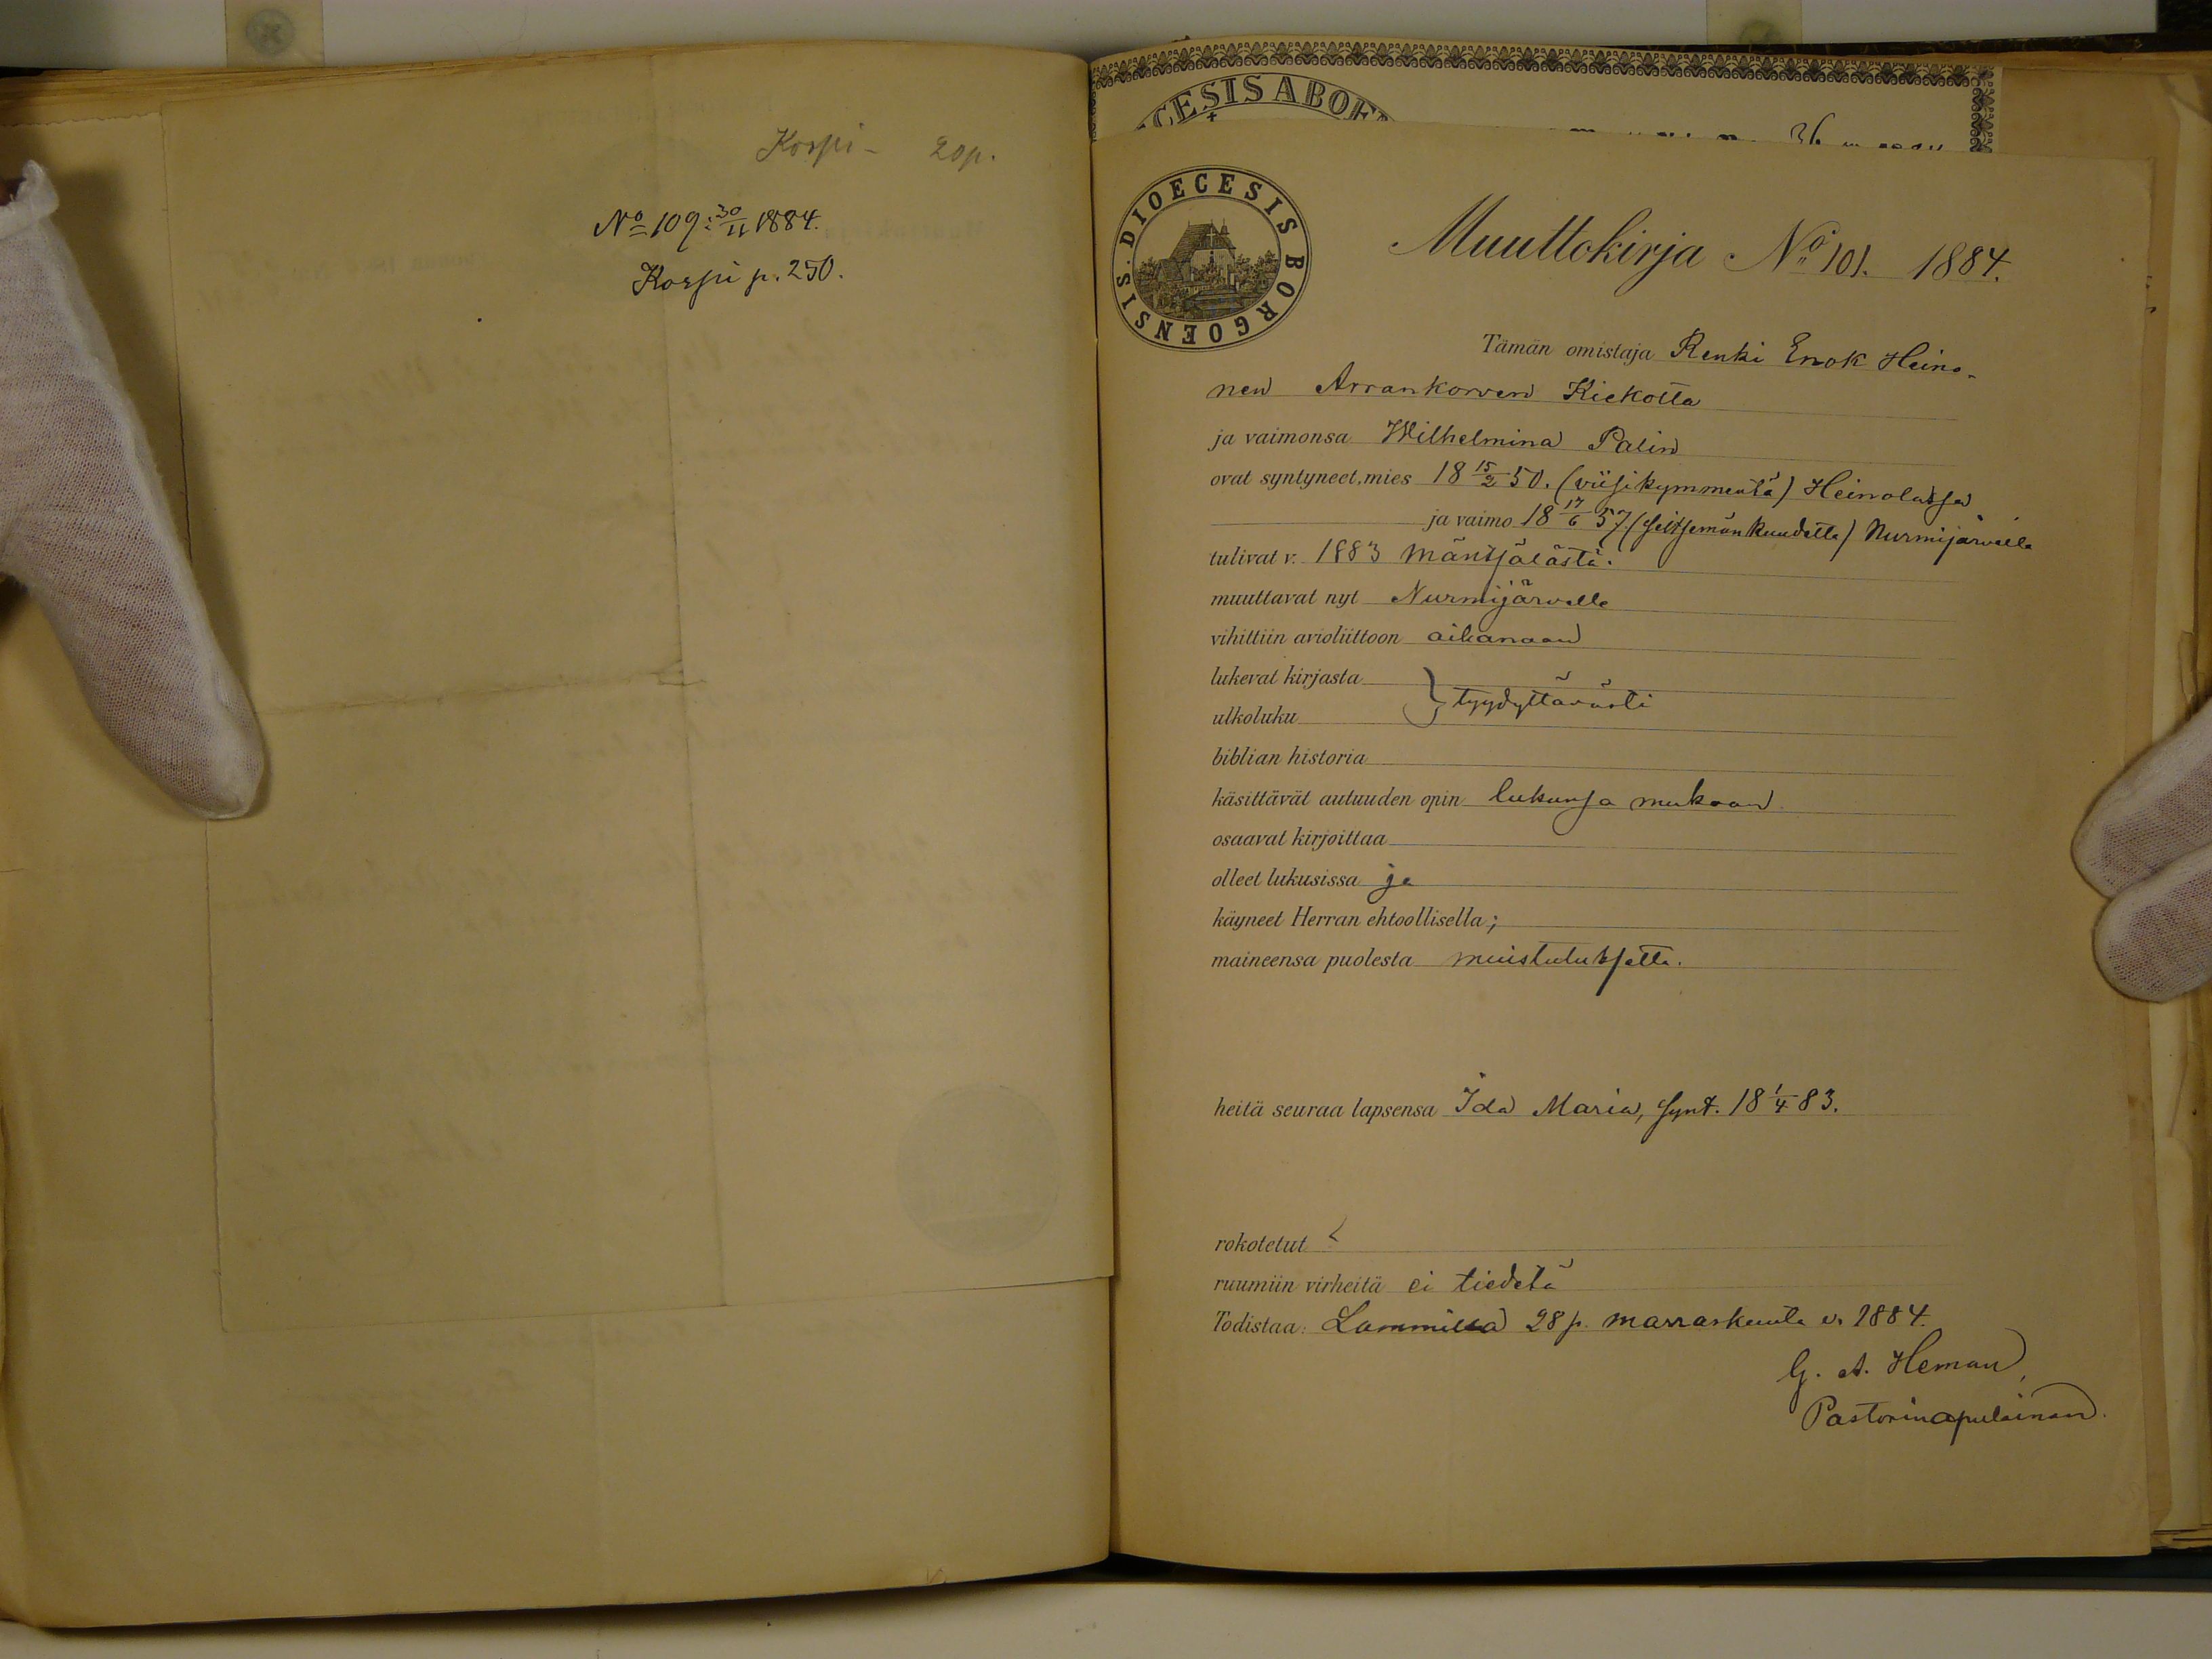 Korpi - 20p.
No 109: 30/11 1884.
Korpi p. 250.
CESIS ABOE
DIOECESIS BORGOENSIS.
Muuttokirja No 101. 1884.
Tämän omistaja Renki Enok Heino-
nen Arrankorven Kiekotta
ja vaimonsa Wilhelmina Palin
ovat syntyneet, mies 18 15/2 50. (viisikymmentä) Heinolassa
ja vaimo 18 17/6 57. (seitsemänkuudetta) Nurmijärvellä
tulivat v. 1883 Mäntsälästä.
muuttavat nyt Nurmijärvelle
vihittiin avioliittoon aikanaan
lukevat kirjasta
} tyydyttävästi
ulkoluku
biblian historia
käsittävät autuuden opin lukunsa mukaan
osaavat kirjoittaa
olleet lukusissa ja
käyneet Herran ehtoollisella;
maineensa puolesta muistutuksetta.
heitä seuraa lapsensa Ida Maria, synt. 18 1/4 83.
rokotetut
ruumiin virheitä ei tiedetä
Todistaa: Lammilla 28 p. marraskuuta v. 1884.
G. A. Heman,
Pastorinapulainen.